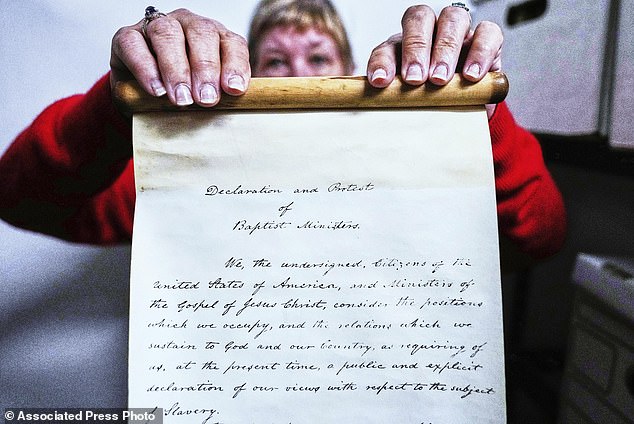 Declaration and Protest
of
Baptist Ministers.
We, the undersigned, Citizens of the
United States of America, and Ministers of
the Gospel of Jesus Christ, consider the positions
which we occupy, and the relations which we
sustain to God and our Country, as requiring of
us, at the present time, a public and explicit
declaration of our views with respect to the subject
of Slavery.
© Associated Press Photo